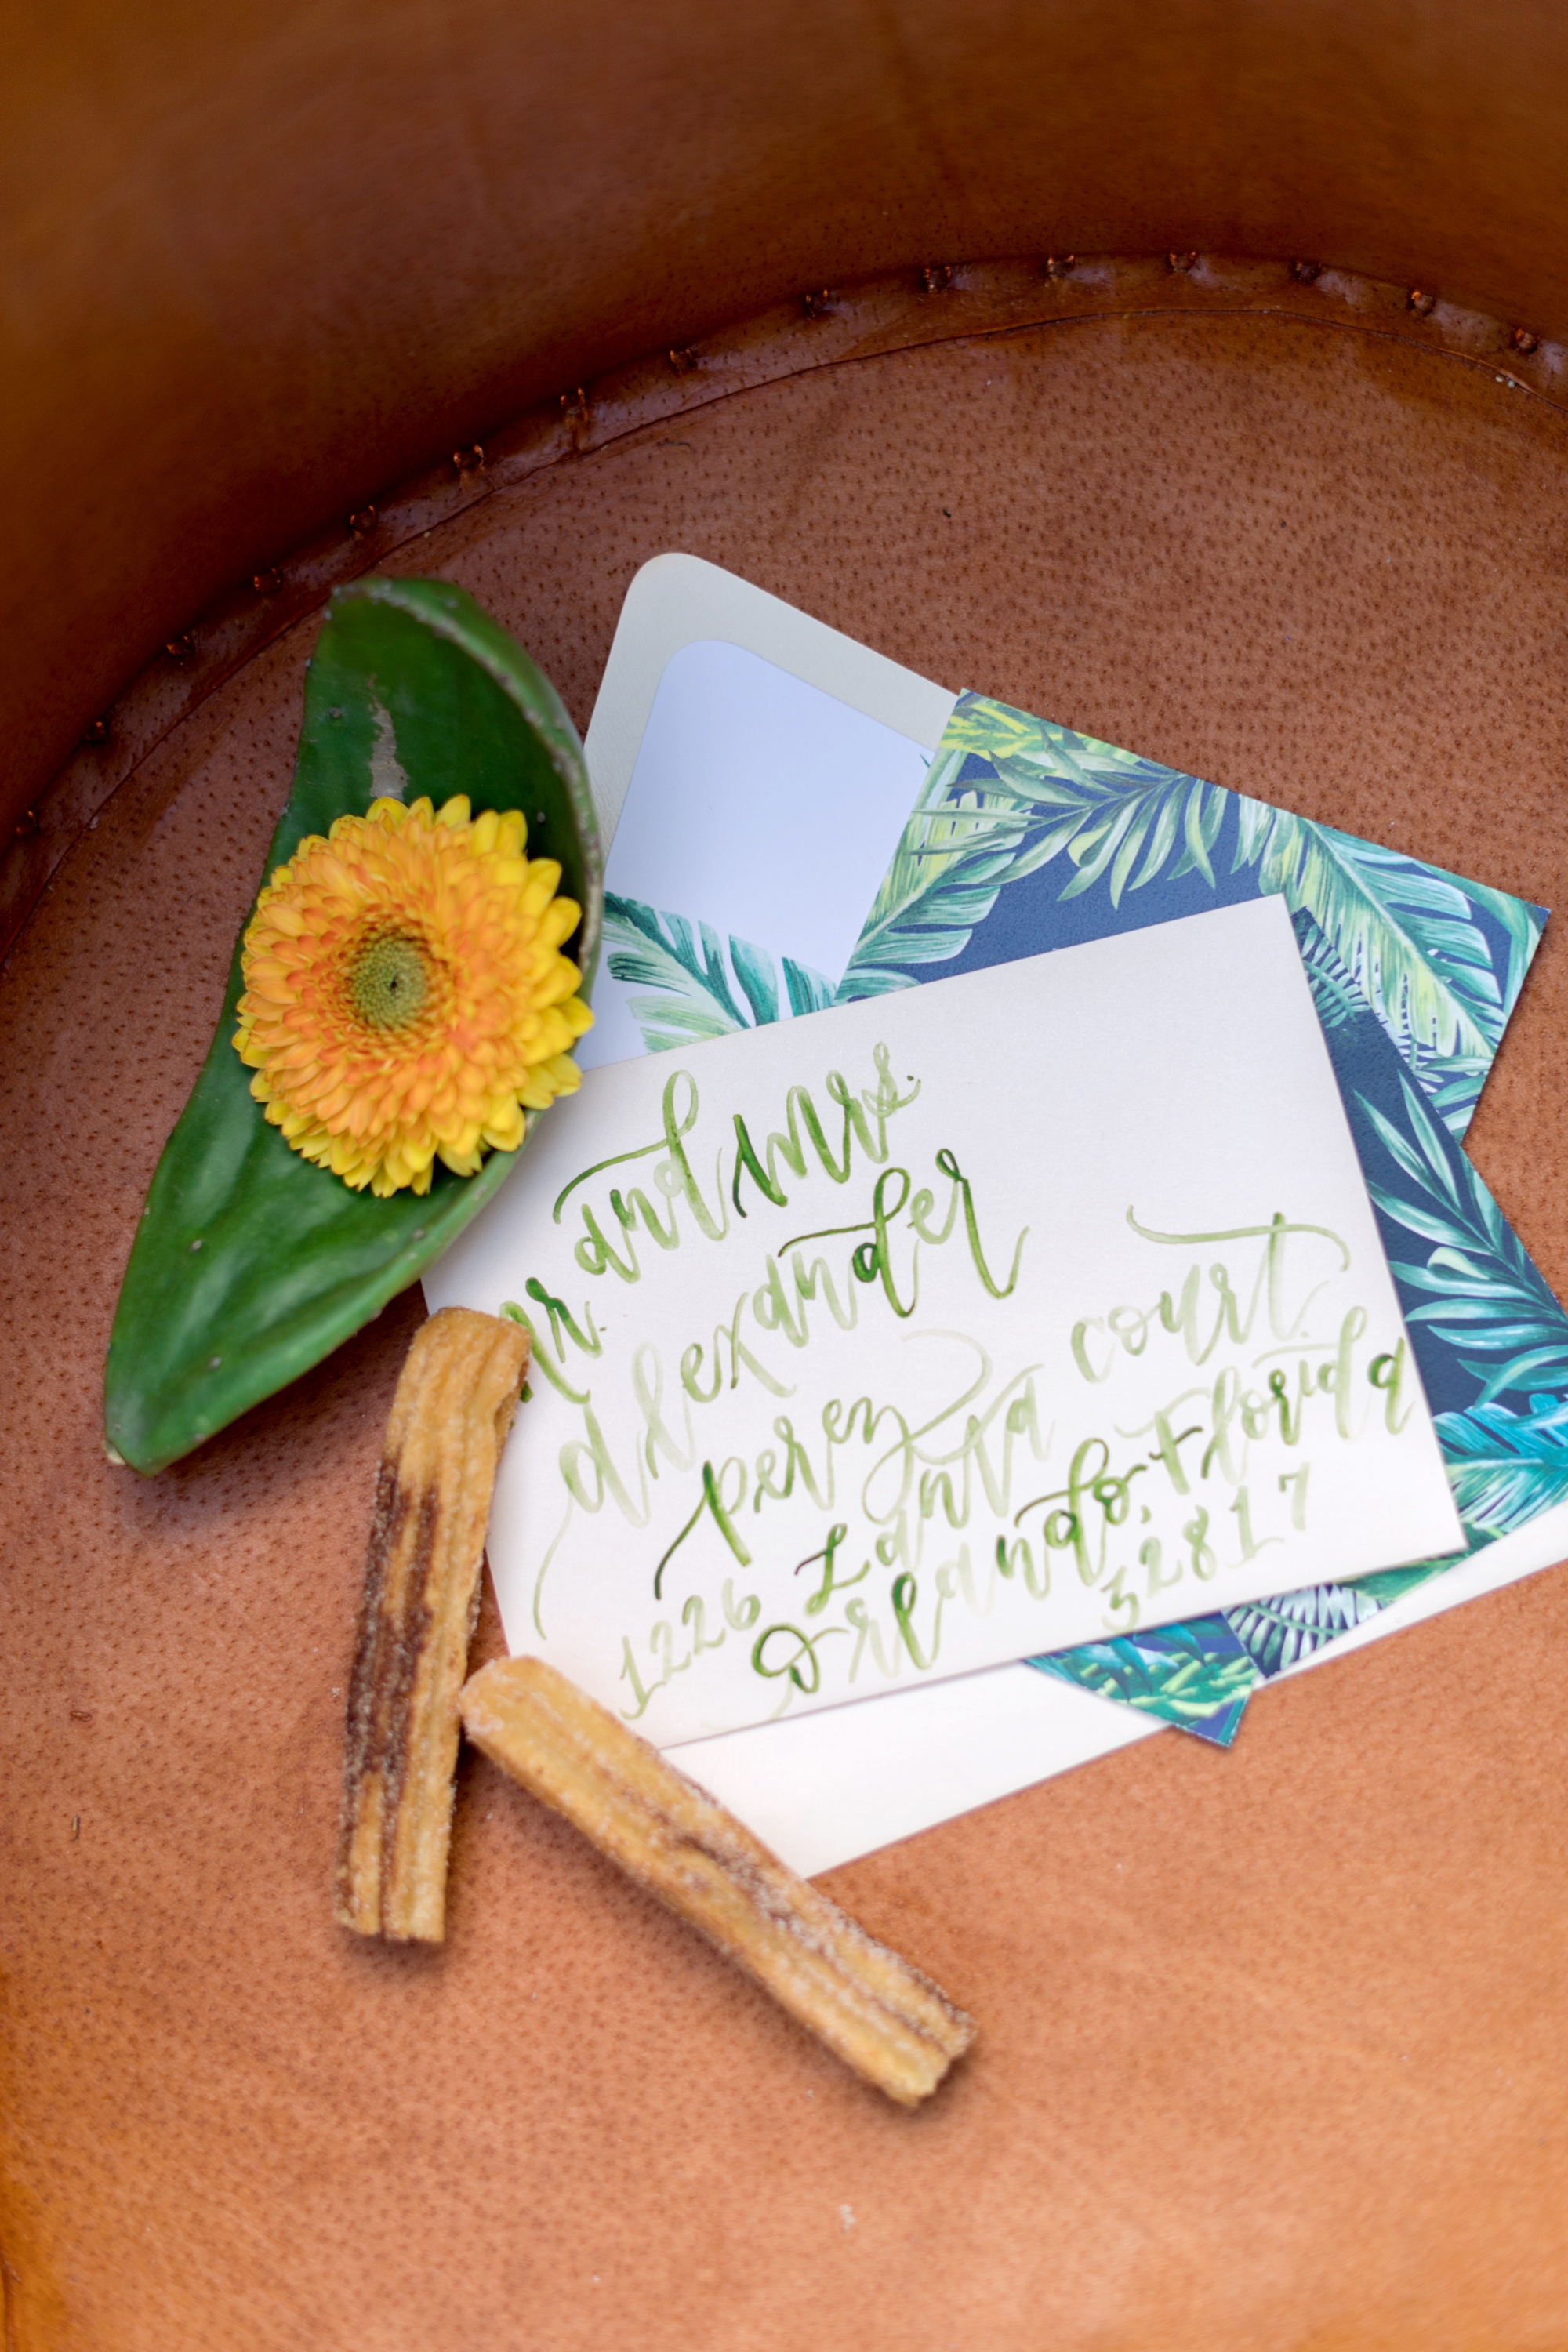 mr. and mrs.
alexander
perey
1226 Lanta court
Orlando, Florida
32817